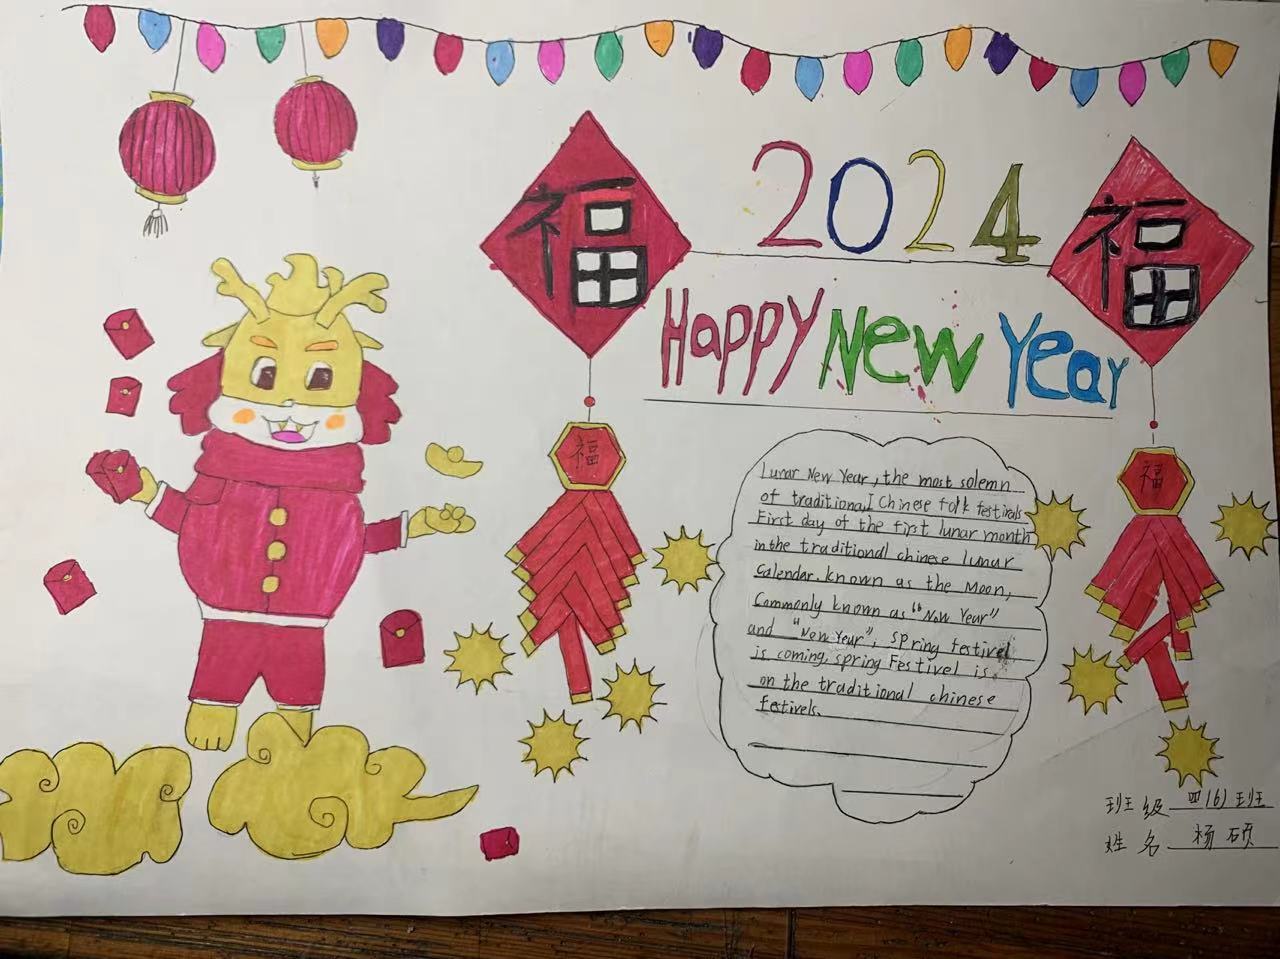 福
2024
福
Happy New Year
福
福
Lunar New Year, the most solemn
of traditional Chinese folk festivals
First day of the first lunar month
in the traditional chinese lunar
Calendar. known as the Moon,
Commonly known as "New Year"
and "New Year", spring festivel
is coming, spring Festivel is.
on the traditional chinese
festivels.
班级 四(6)班
姓名 杨硕